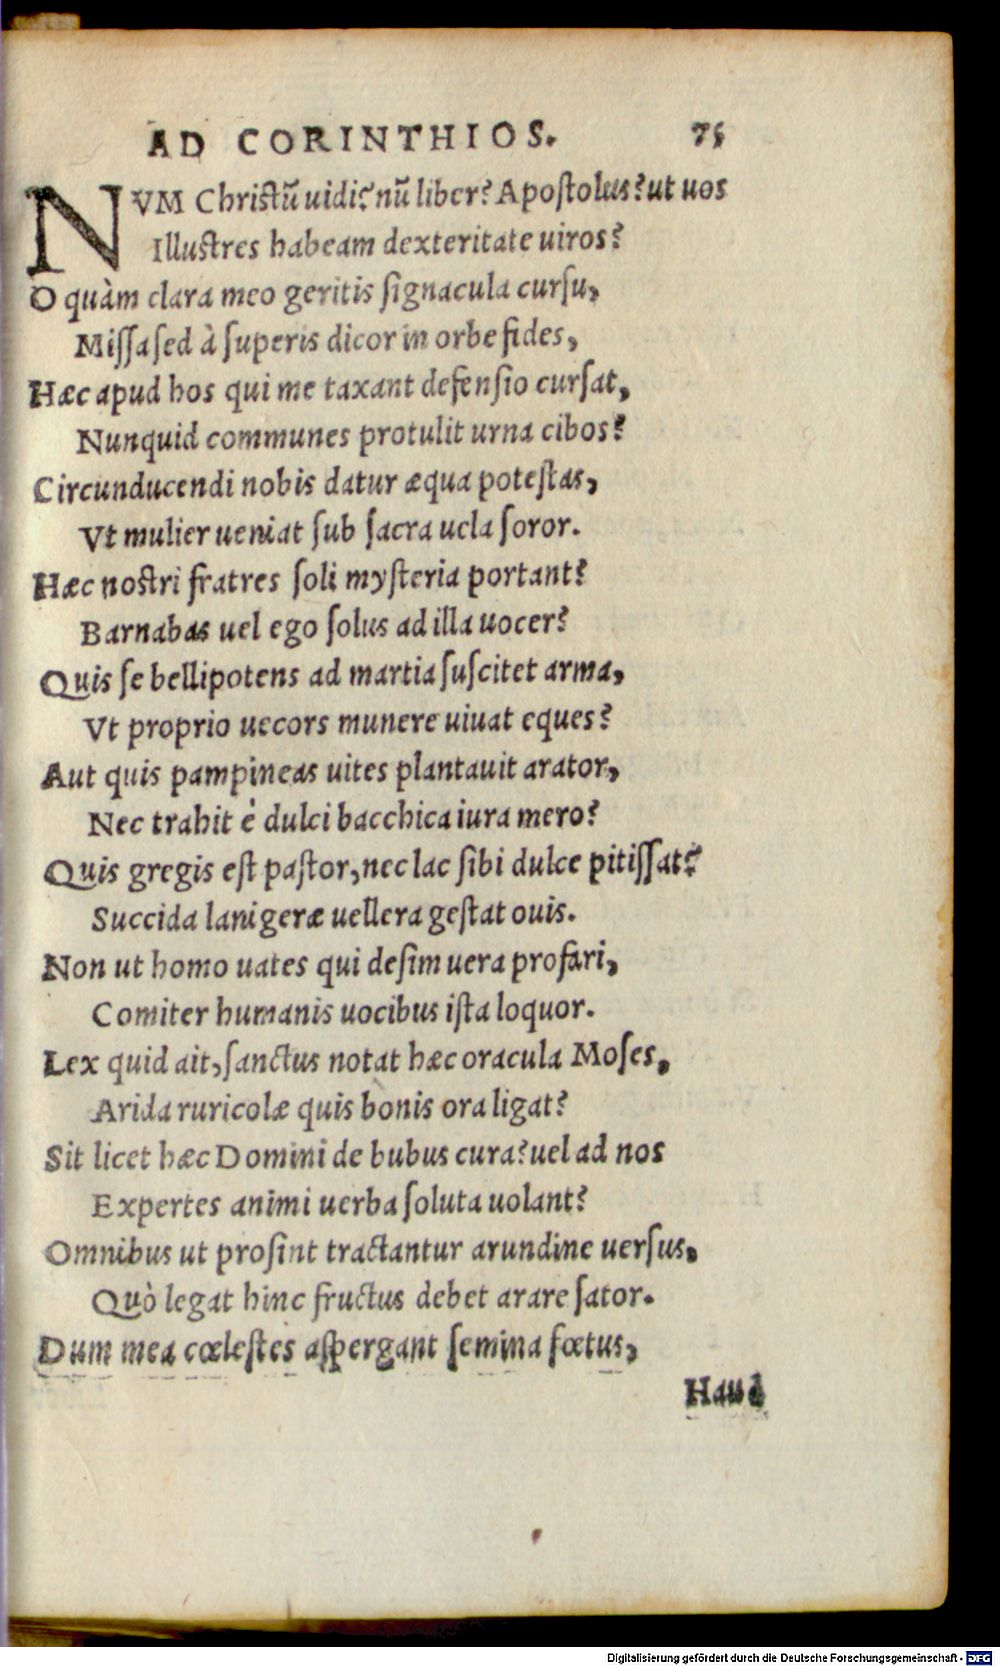 AD CORINTHIOS. 75
NVM Christū uidi? nū liber? Apostolus? ut uos
Illustres habeam dexteritate uiros?
O quàm clara meo geritis signacula cursu,
Missa sed à superis dicor in orbe fides,
Hæc apud hos qui me taxant defensio cursat,
Nunquid communes protulit urna cibos?
Circunducendi nobis datur æqua potestas,
Vt mulier ueniat sub sacra uela soror.
Hæc nostri fratres soli mysteria portant?
Barnabas uel ego solus ad illa uocer?
Quis se bellipotens ad martia suscitet arma,
Vt proprio uecors munere uiuat eques?
Aut quis pampineas uites plantauit arator,
Nec trahit è dulci bacchica iura mero?
Quis gregis est pastor, nec lac sibi dulce pitissat?
Succida lanigeræ uellera gestat ouis.
Non ut homo uates qui desim uera profari,
Comiter humanis uocibus ista loquor.
Lex quid ait, sanctus notat hæc oracula Moses,
Arida ruricolæ quis bonis ora ligat?
Sit licet hæc Domini de bubus cura? uel ad nos
Expertes animi uerba soluta uolant?
Omnibus ut prosint tractantur arundine uersus,
Quò legat hinc fructus debet arare sator.
Dum mea cœlestes aspergant semina fœtus,
Haud
Digitalisierung gefördert durch die Deutsche Forschungsgemeinschaft - DFG